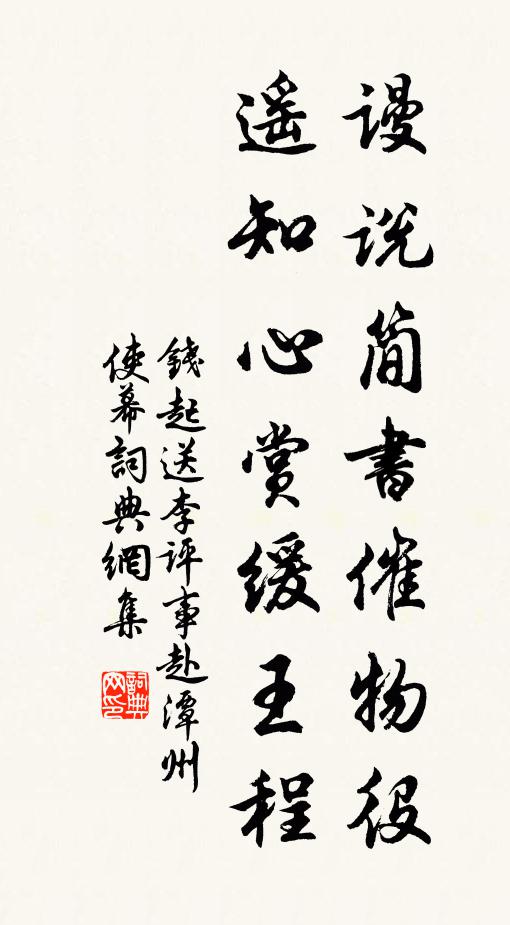 谩说简書催物役
遥知心赏缓王程
錢起送李评事赴潭州
使幕詞典網集
詞典网印